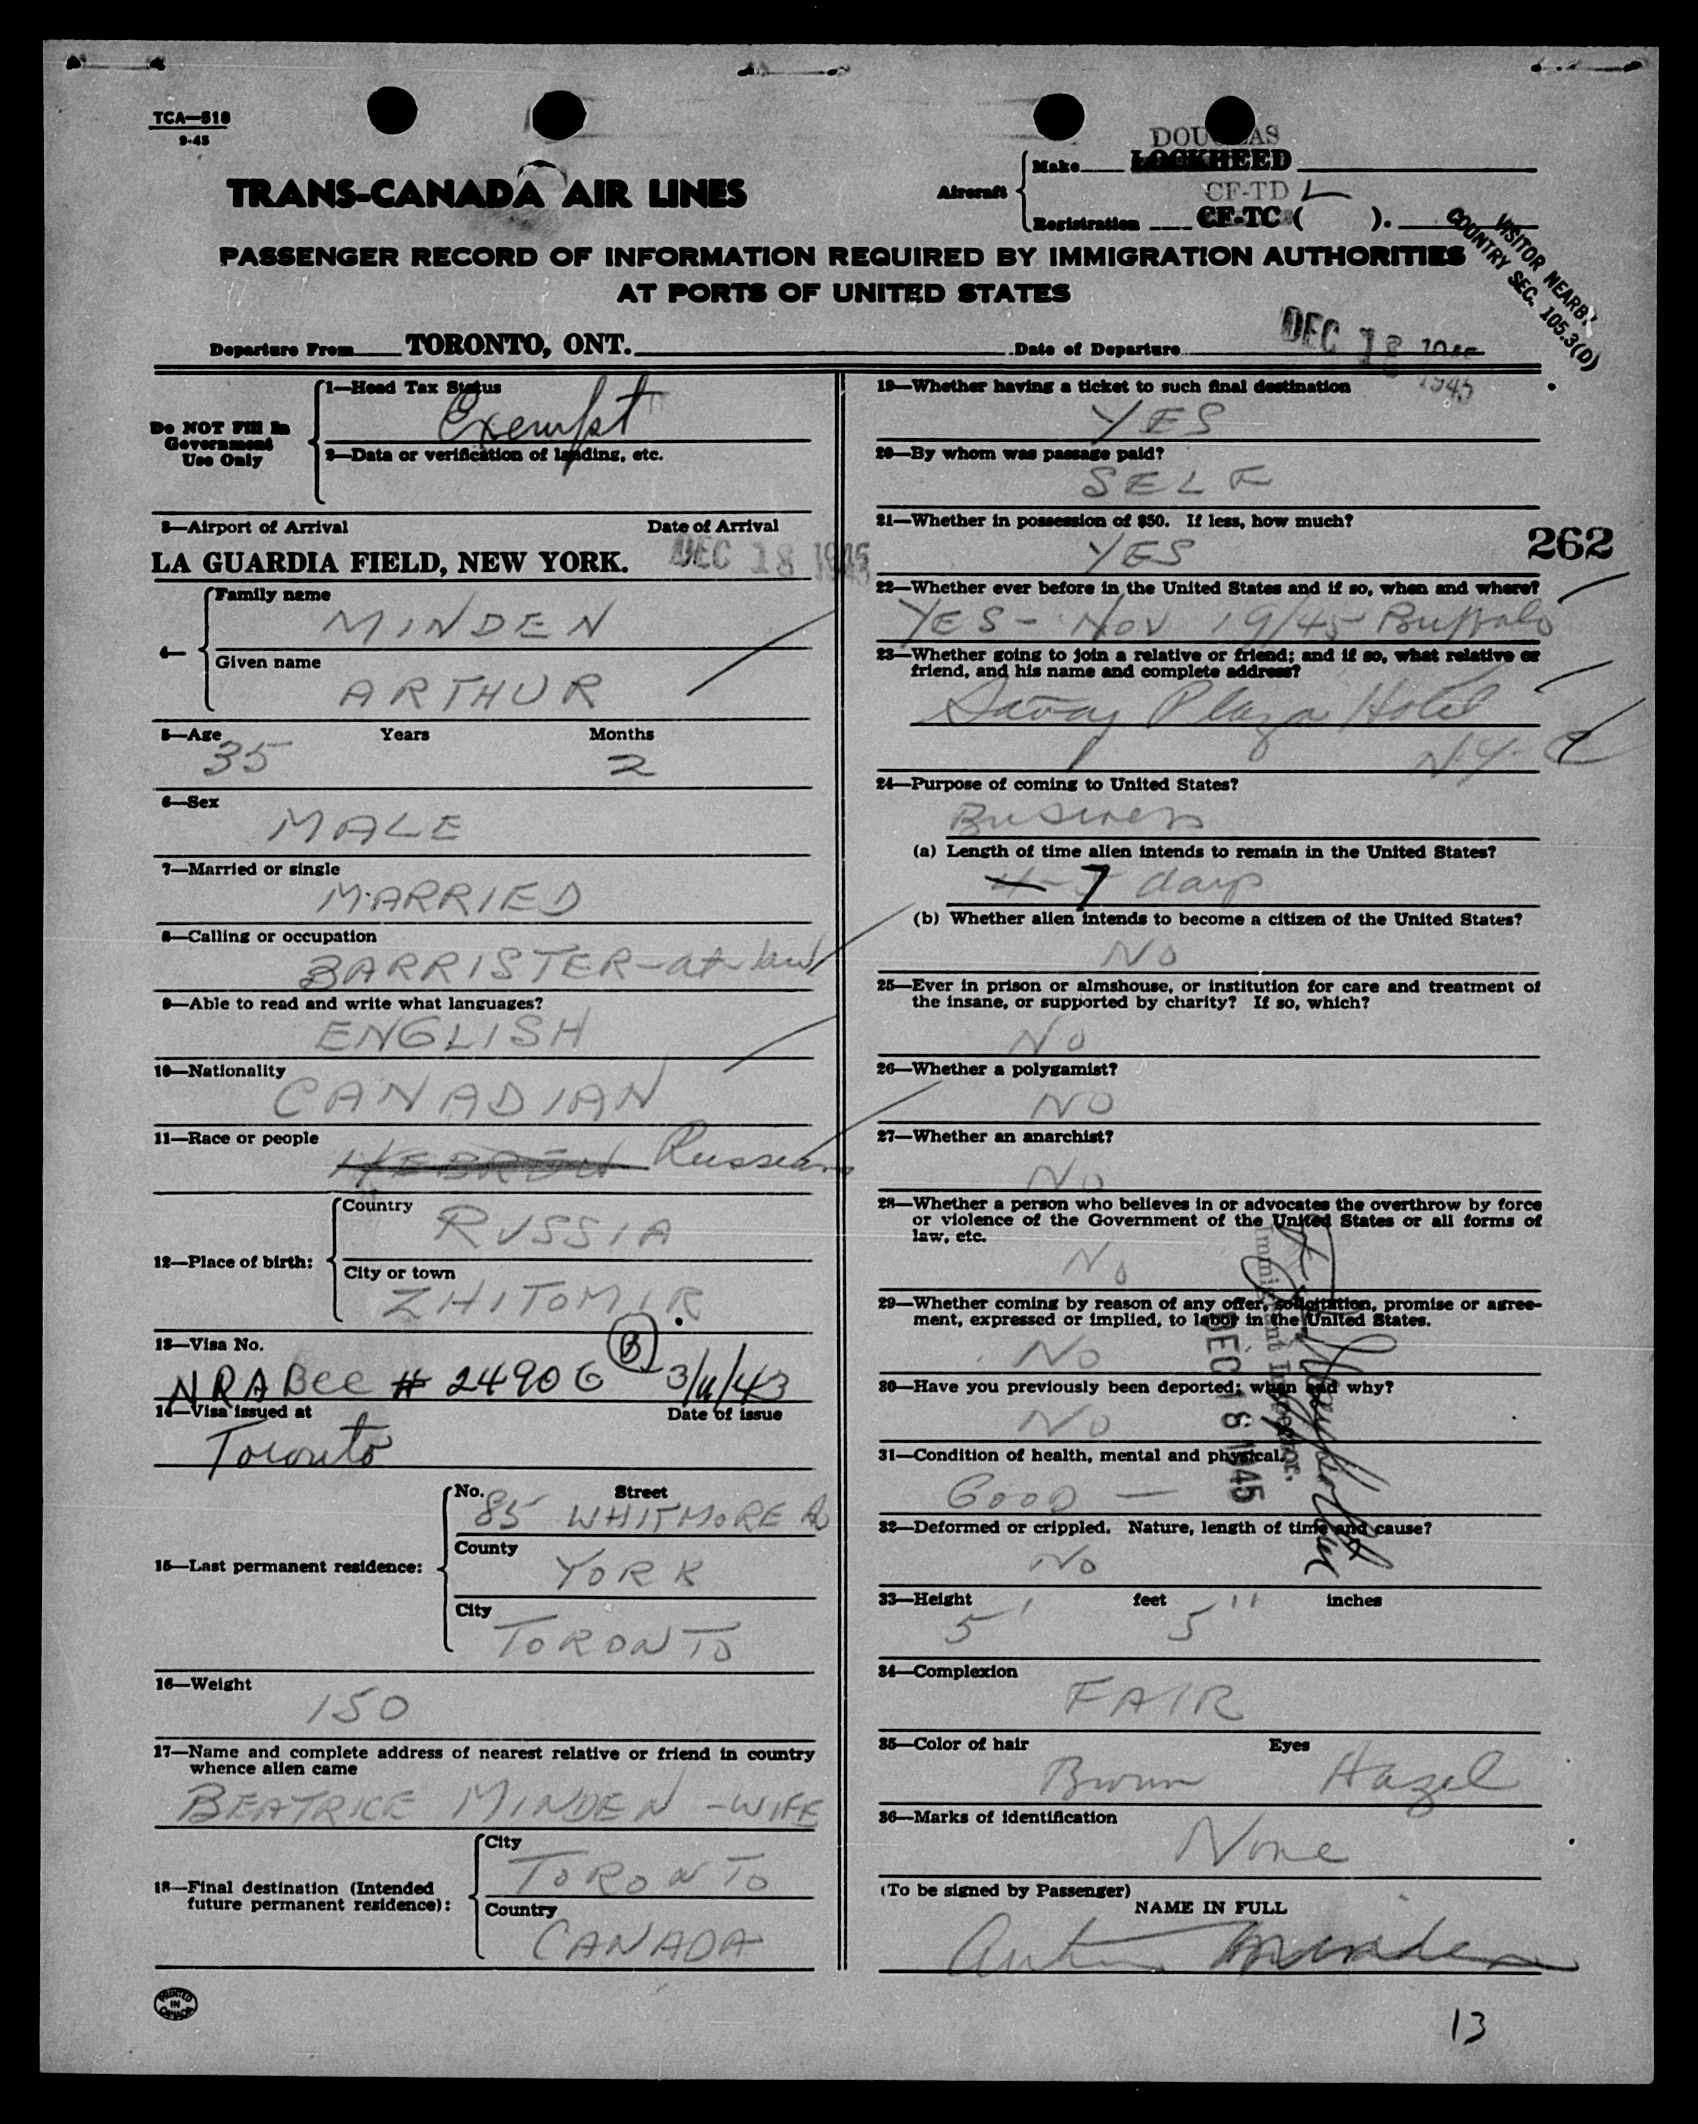 TCA—518
9-45
TRANS-CANADA AIR LINES
Aircraft
Make
DOUGLAS
LOCKHEED
CF-TD L
Registration CF-TC ( ).
VISITOR NEARBY
COUNTRY SEC. 105.3(D)
PASSENGER RECORD OF INFORMATION REQUIRED BY IMMIGRATION AUTHORITIES
AT PORTS OF UNITED STATES
Departure From TORONTO, ONT. Date of Departure DEC 18 1945
Do NOT Fill In
Government
Use Only
1—Head Tax Status
Exempt
2—Data or verification of landing, etc.
3—Airport of Arrival Date of Arrival
LA GUARDIA FIELD, NEW YORK. DEC 18 1945
4—
Family name
MINDEN
Given name
ARTHUR
5—Age Years Months
35 2
6—Sex
MALE
7—Married or single
MARRIED
8—Calling or occupation
BARRISTER-at-law
9—Able to read and write what languages?
ENGLISH
10—Nationality
CANADIAN
11—Race or people
HEBREW Russian
12—Place of birth:
Country
RUSSIA
City or town
ZHITOMIR
13—Visa No.
NRA Bcc # 24906 (B) 3/11/43
14—Visa issued at Date of issue
Toronto
15—Last permanent residence:
No. Street
85 WHITMORE Rd
County
YORK
City
TORONTO
16—Weight
150
17—Name and complete address of nearest relative or friend in country
whence alien came
BEATRICE MINDEN - WIFE
18—Final destination (Intended
future permanent residence):
City
TORONTO
Country
CANADA
PRINTED
IN
CANADA
19—Whether having a ticket to such final destination
YES
20—By whom was passage paid?
SELF
21—Whether in possession of $50. If less, how much?
YES
262
22—Whether ever before in the United States and if so, when and where?
YES - Nov 19/45 Buffalo
23—Whether going to join a relative or friend; and if so, what relative or
friend, and his name and complete address?
Savoy Plaza Hotel
N.Y. C
24—Purpose of coming to United States?
Business
(a) Length of time alien intends to remain in the United States?
7 days
(b) Whether alien intends to become a citizen of the United States?
No
25—Ever in prison or almshouse, or institution for care and treatment of
the insane, or supported by charity? If so, which?
No
26—Whether a polygamist?
NO
27—Whether an anarchist?
No
28—Whether a person who believes in or advocates the overthrow by force
or violence of the Government of the United States or all forms of
law, etc.
No
29—Whether coming by reason of any offer, solicitation, promise or agree-
ment, expressed or implied, to labor in the United States.
No
30—Have you previously been deported; when and why?
No
31—Condition of health, mental and physical.
GOOD —
32—Deformed or crippled. Nature, length of time and cause?
No
DEC 18 1945
Immigrant Inspector.
33—Height feet inches
5' 5"
34—Complexion
FAIR
35—Color of hair Eyes
Brown Hazel
36—Marks of identification
None
(To be signed by Passenger)
NAME IN FULL
Arthur Minden
13